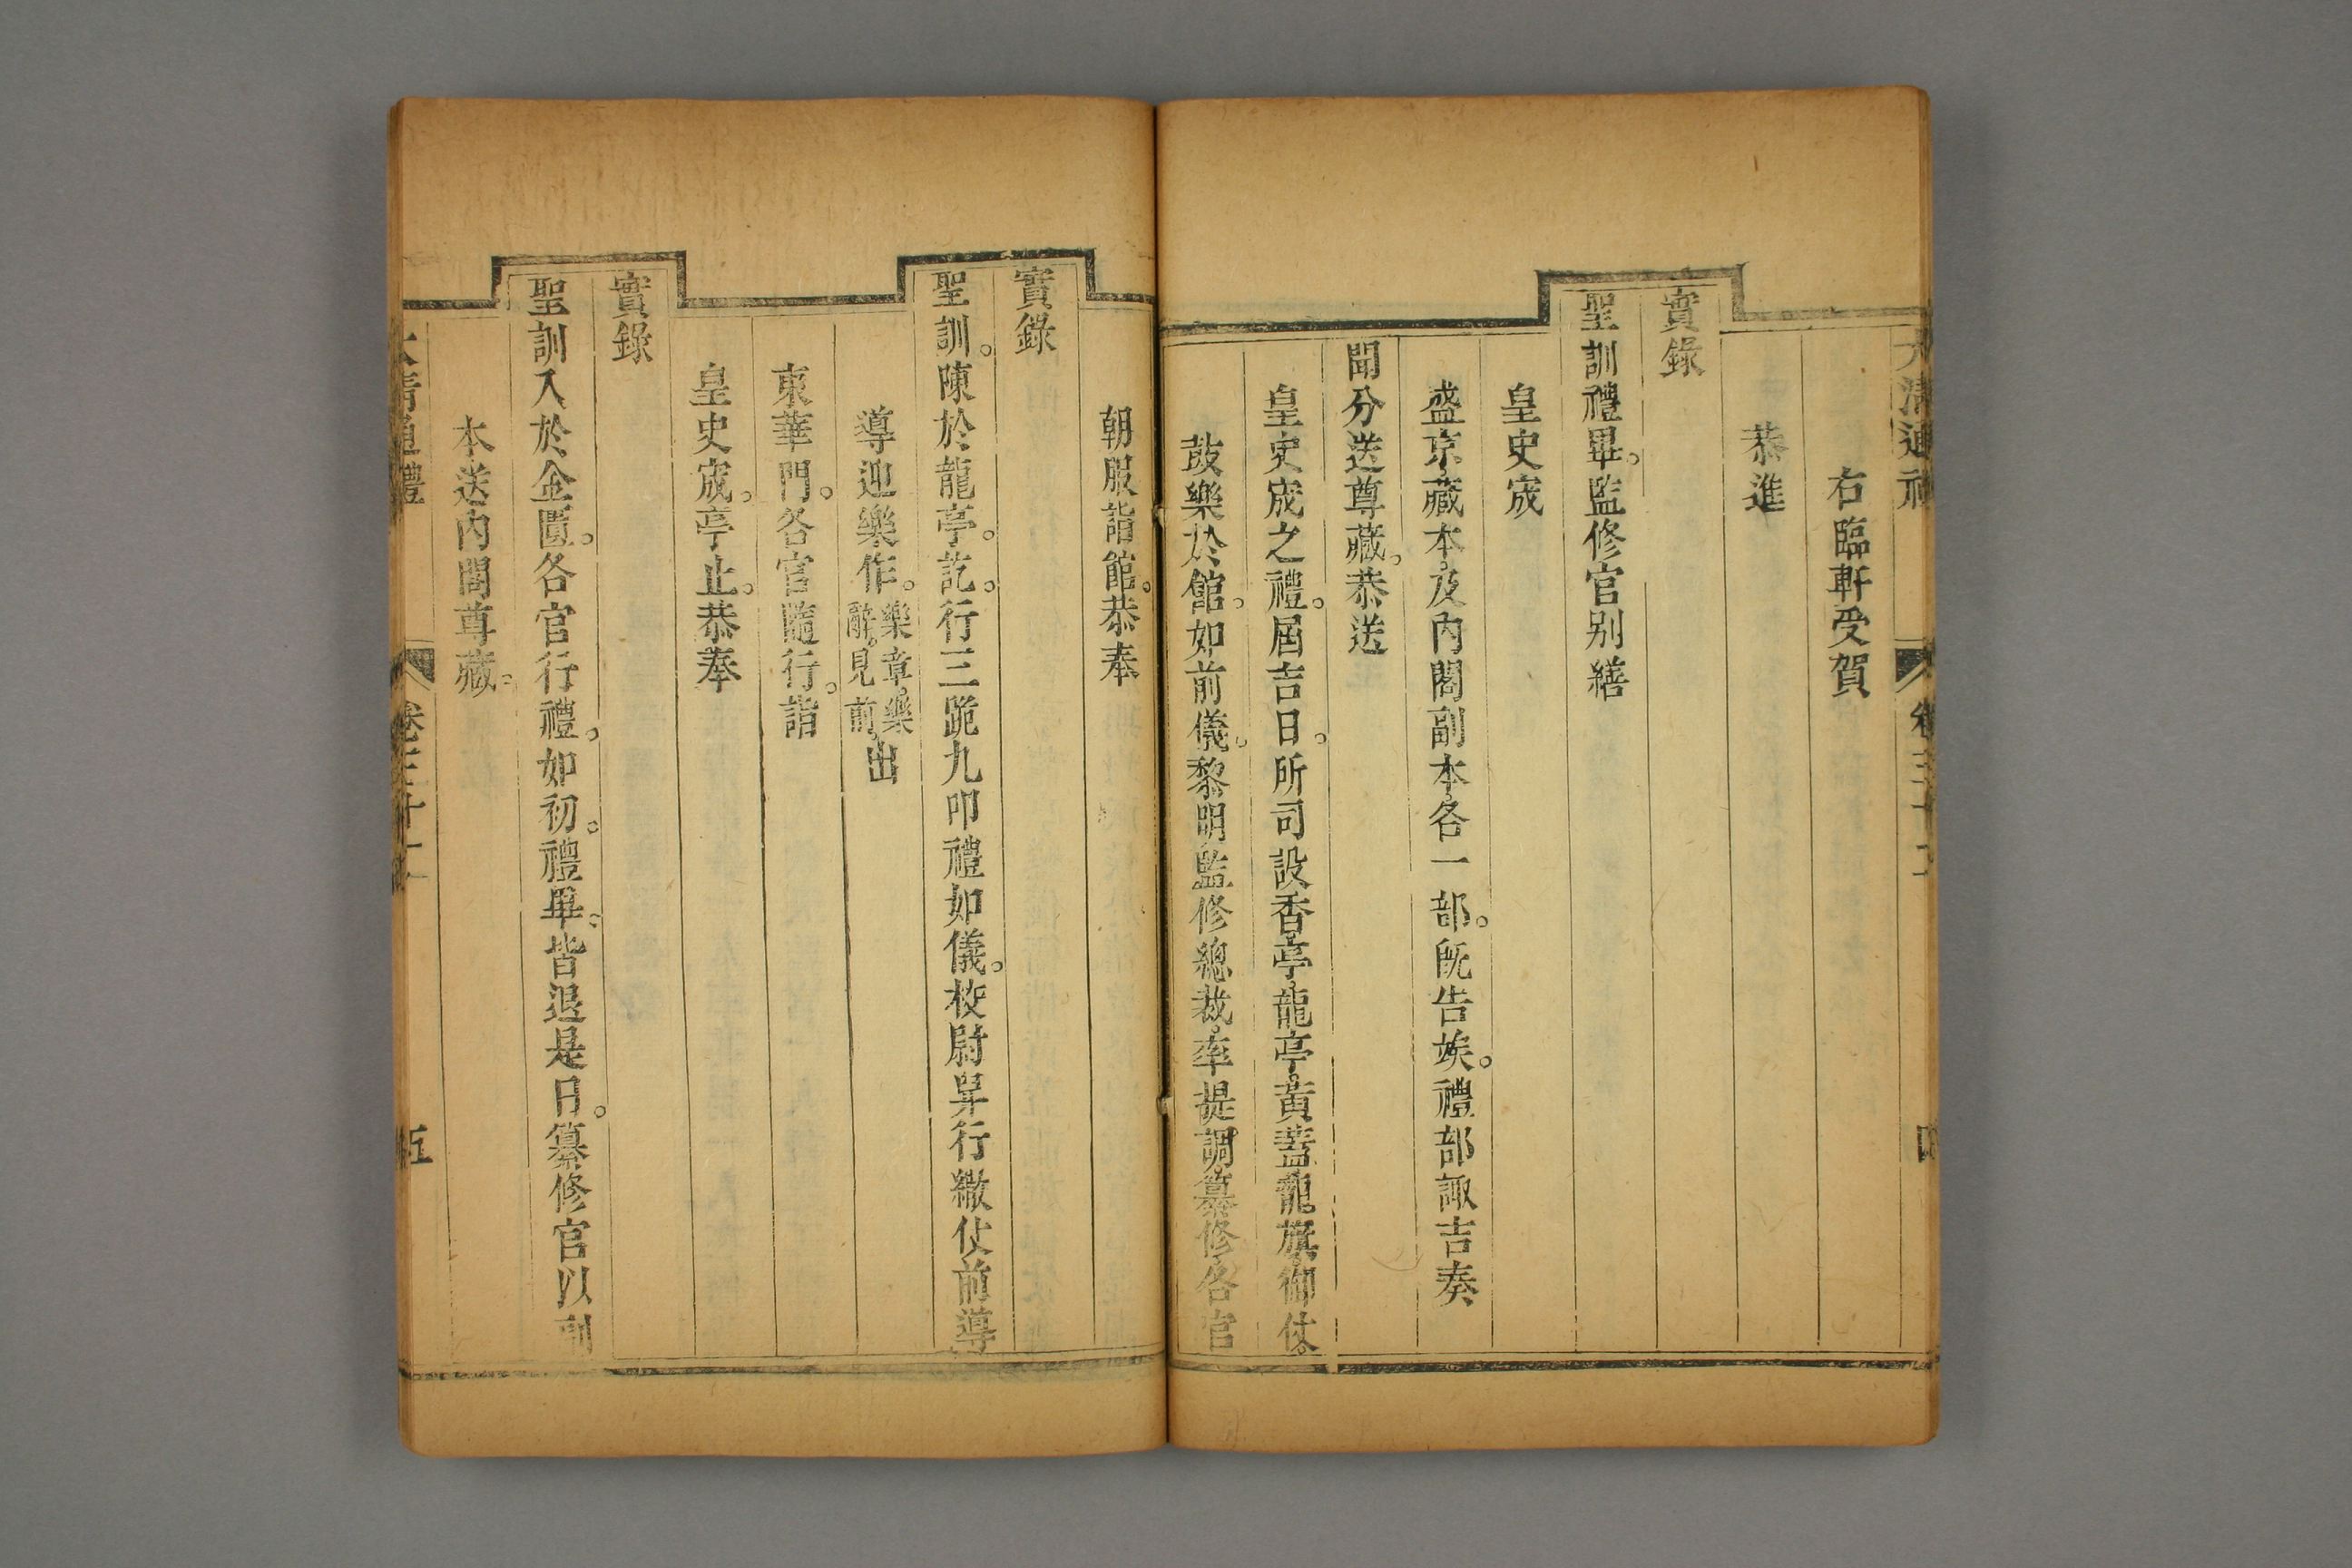 大清通禮 卷三十 四
右臨軒受賀
恭進
實錄
聖訓禮畢。監修官别繕
皇史宬
盛京藏本及內閣副本各一部。旣告竣。禮部諏吉奏
聞分送尊藏。恭送
皇史宬之禮。届吉日。所司設香亭龍亭黃蓋龍旗御仗。
鼓樂於館。如前儀。黎明監修總裁率提調纂修各官
朝服詣館。恭奉
實錄
聖訓。陳於龍亭。訖。行三跪九叩禮如儀。校尉舁行繖仗前導
導迎樂作。樂章樂辭見前出
東華門。各官隨行。詣
皇史宬。亭止。恭奉
實錄
聖訓入於金匱。各官行禮。如初。禮畢。皆退是日。纂修官以副
本送內閣尊藏。
大清通禮 卷三十 五